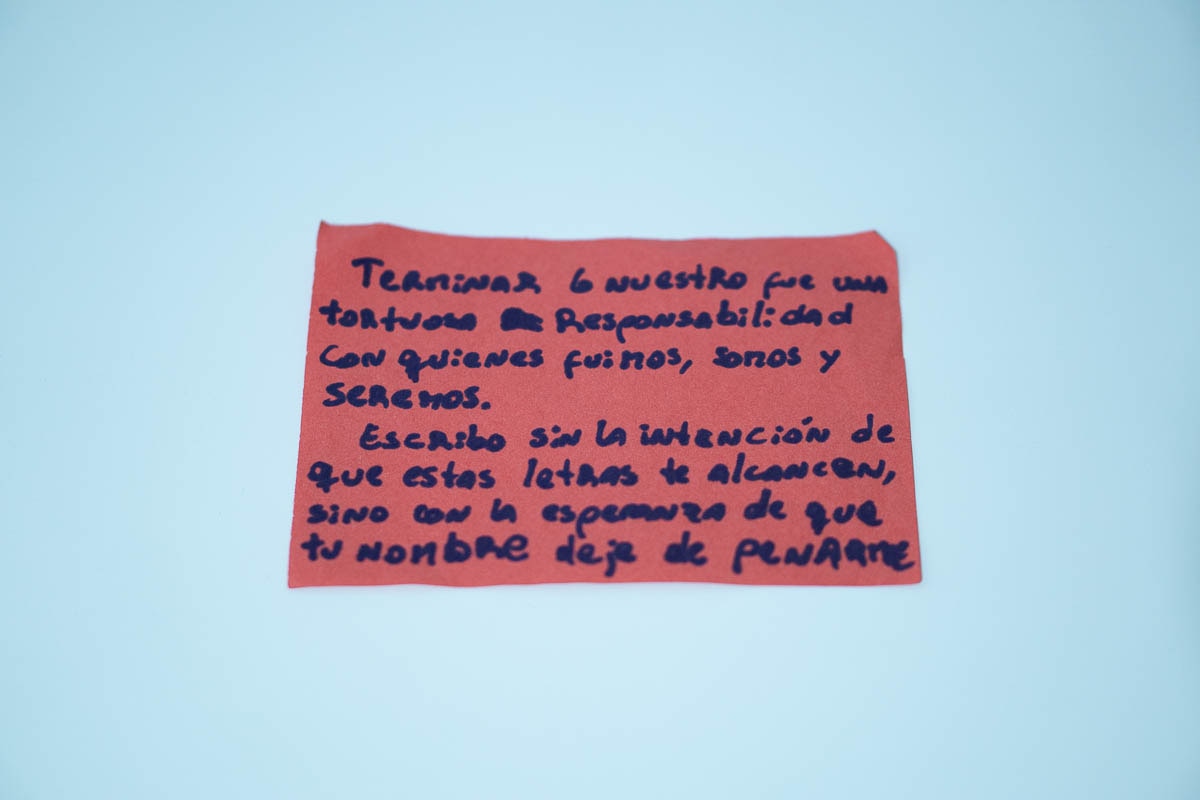 Terminar lo nuestro fue una
tortuosa Responsabilidad
con quienes fuimos, somos y
seremos.
Escribo sin la intención de
que estas letras te alcancen,
sino con la esperanza de que
tu nombre deje de penarme